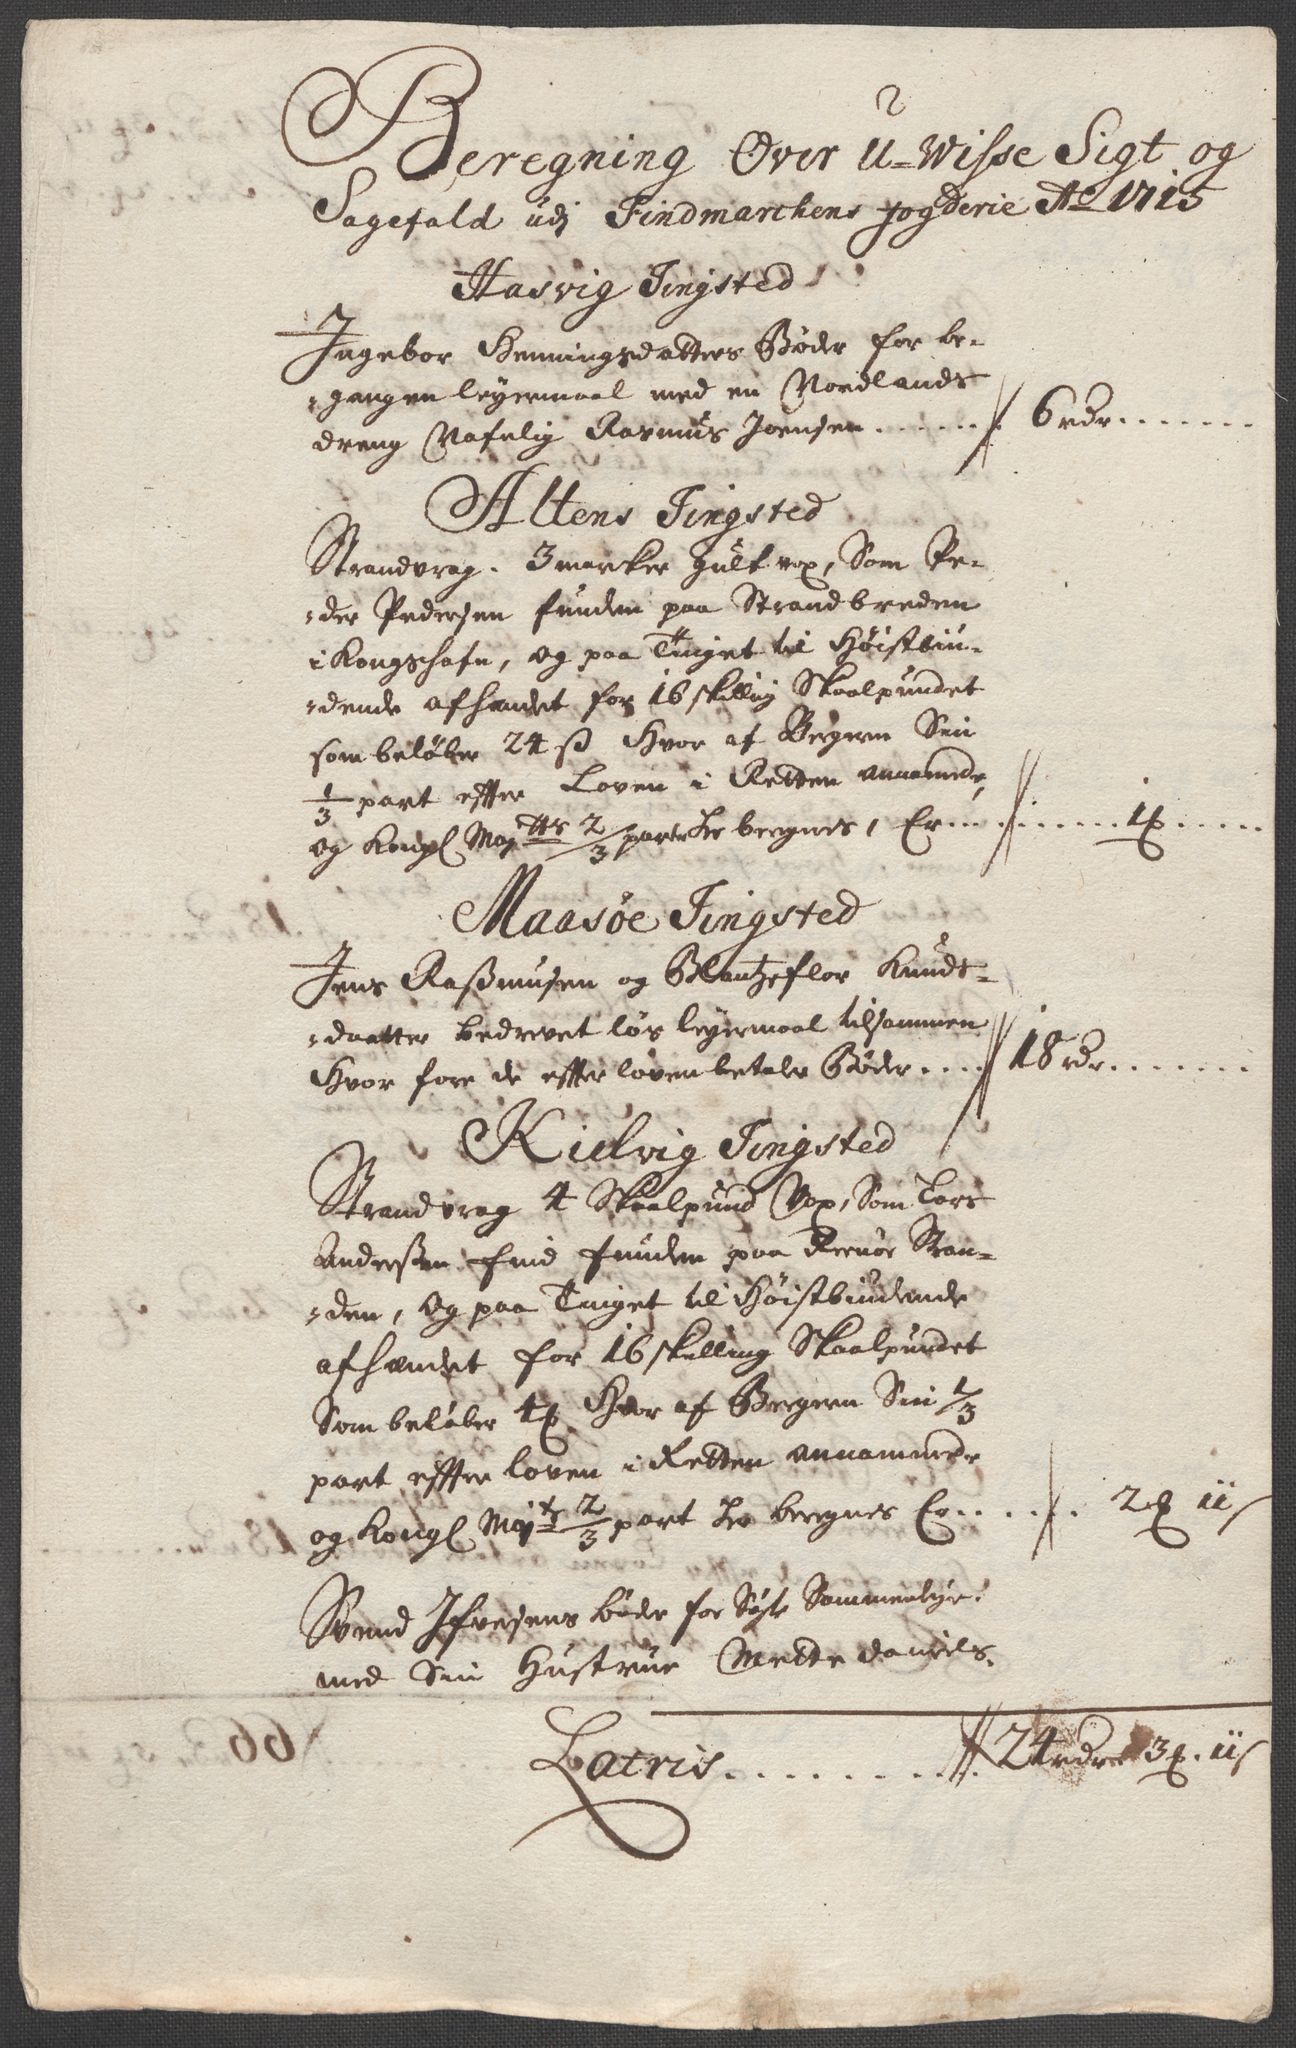 Beregning Over U-Wisse Sigt og
Sagefald udj Findmarchens fogderie Ao 1715
Hasvig Tingsted
Ingebor Henningsdatters Bøder for be-
-gangen leyermaal med en Nordlands
dreng Nafnlig Rasmus Joensen ...... 6 rdr ......
Altens Tingsted
Strandvrag. 3 marker gult vox, Som Pe-
-der Pedersen funden paa Strandbreden
i Kongshafn, og paa Tinget til Høistbiu-
-dende afhændet for 16 skilling Skaalpundet
som beløber 24 ß Hvor af Bergeren Sin
1/3 part effter Loven i Retten annamede,
og Kongl Maytts 2/3 parter her beregnes, Er ...... 1 ₰ ......
Maasøe Tingsted
Jens Raßmusen og Blantzeflor Knuds-
-daatter bedrevet løs leyermaal tilsammen
Hvor fore de effter loven betaler Bøder .... 18 rdr ......
Kielvig Tingsted
Strandvrag 4 Skaalpund Vox, Som Lars
Anderßen find funden paa Stran-
-den, og paa Tinget til Høistbiudende
afhændet for 16 skilling Skaalpundet
Som beløber 4 ₰ Hvor af Bergeren Sin 1/3
part effter loven i Retten annammede
og Kongl Mayts 2/3 part her beregnes Er ..... 2 ₰ 11 s
Svend Ifversens bøder for Sammenleye
med Sin Hustrue Mette Daniels.
Latris ........ 24 rdr 3 ₰. 11 s